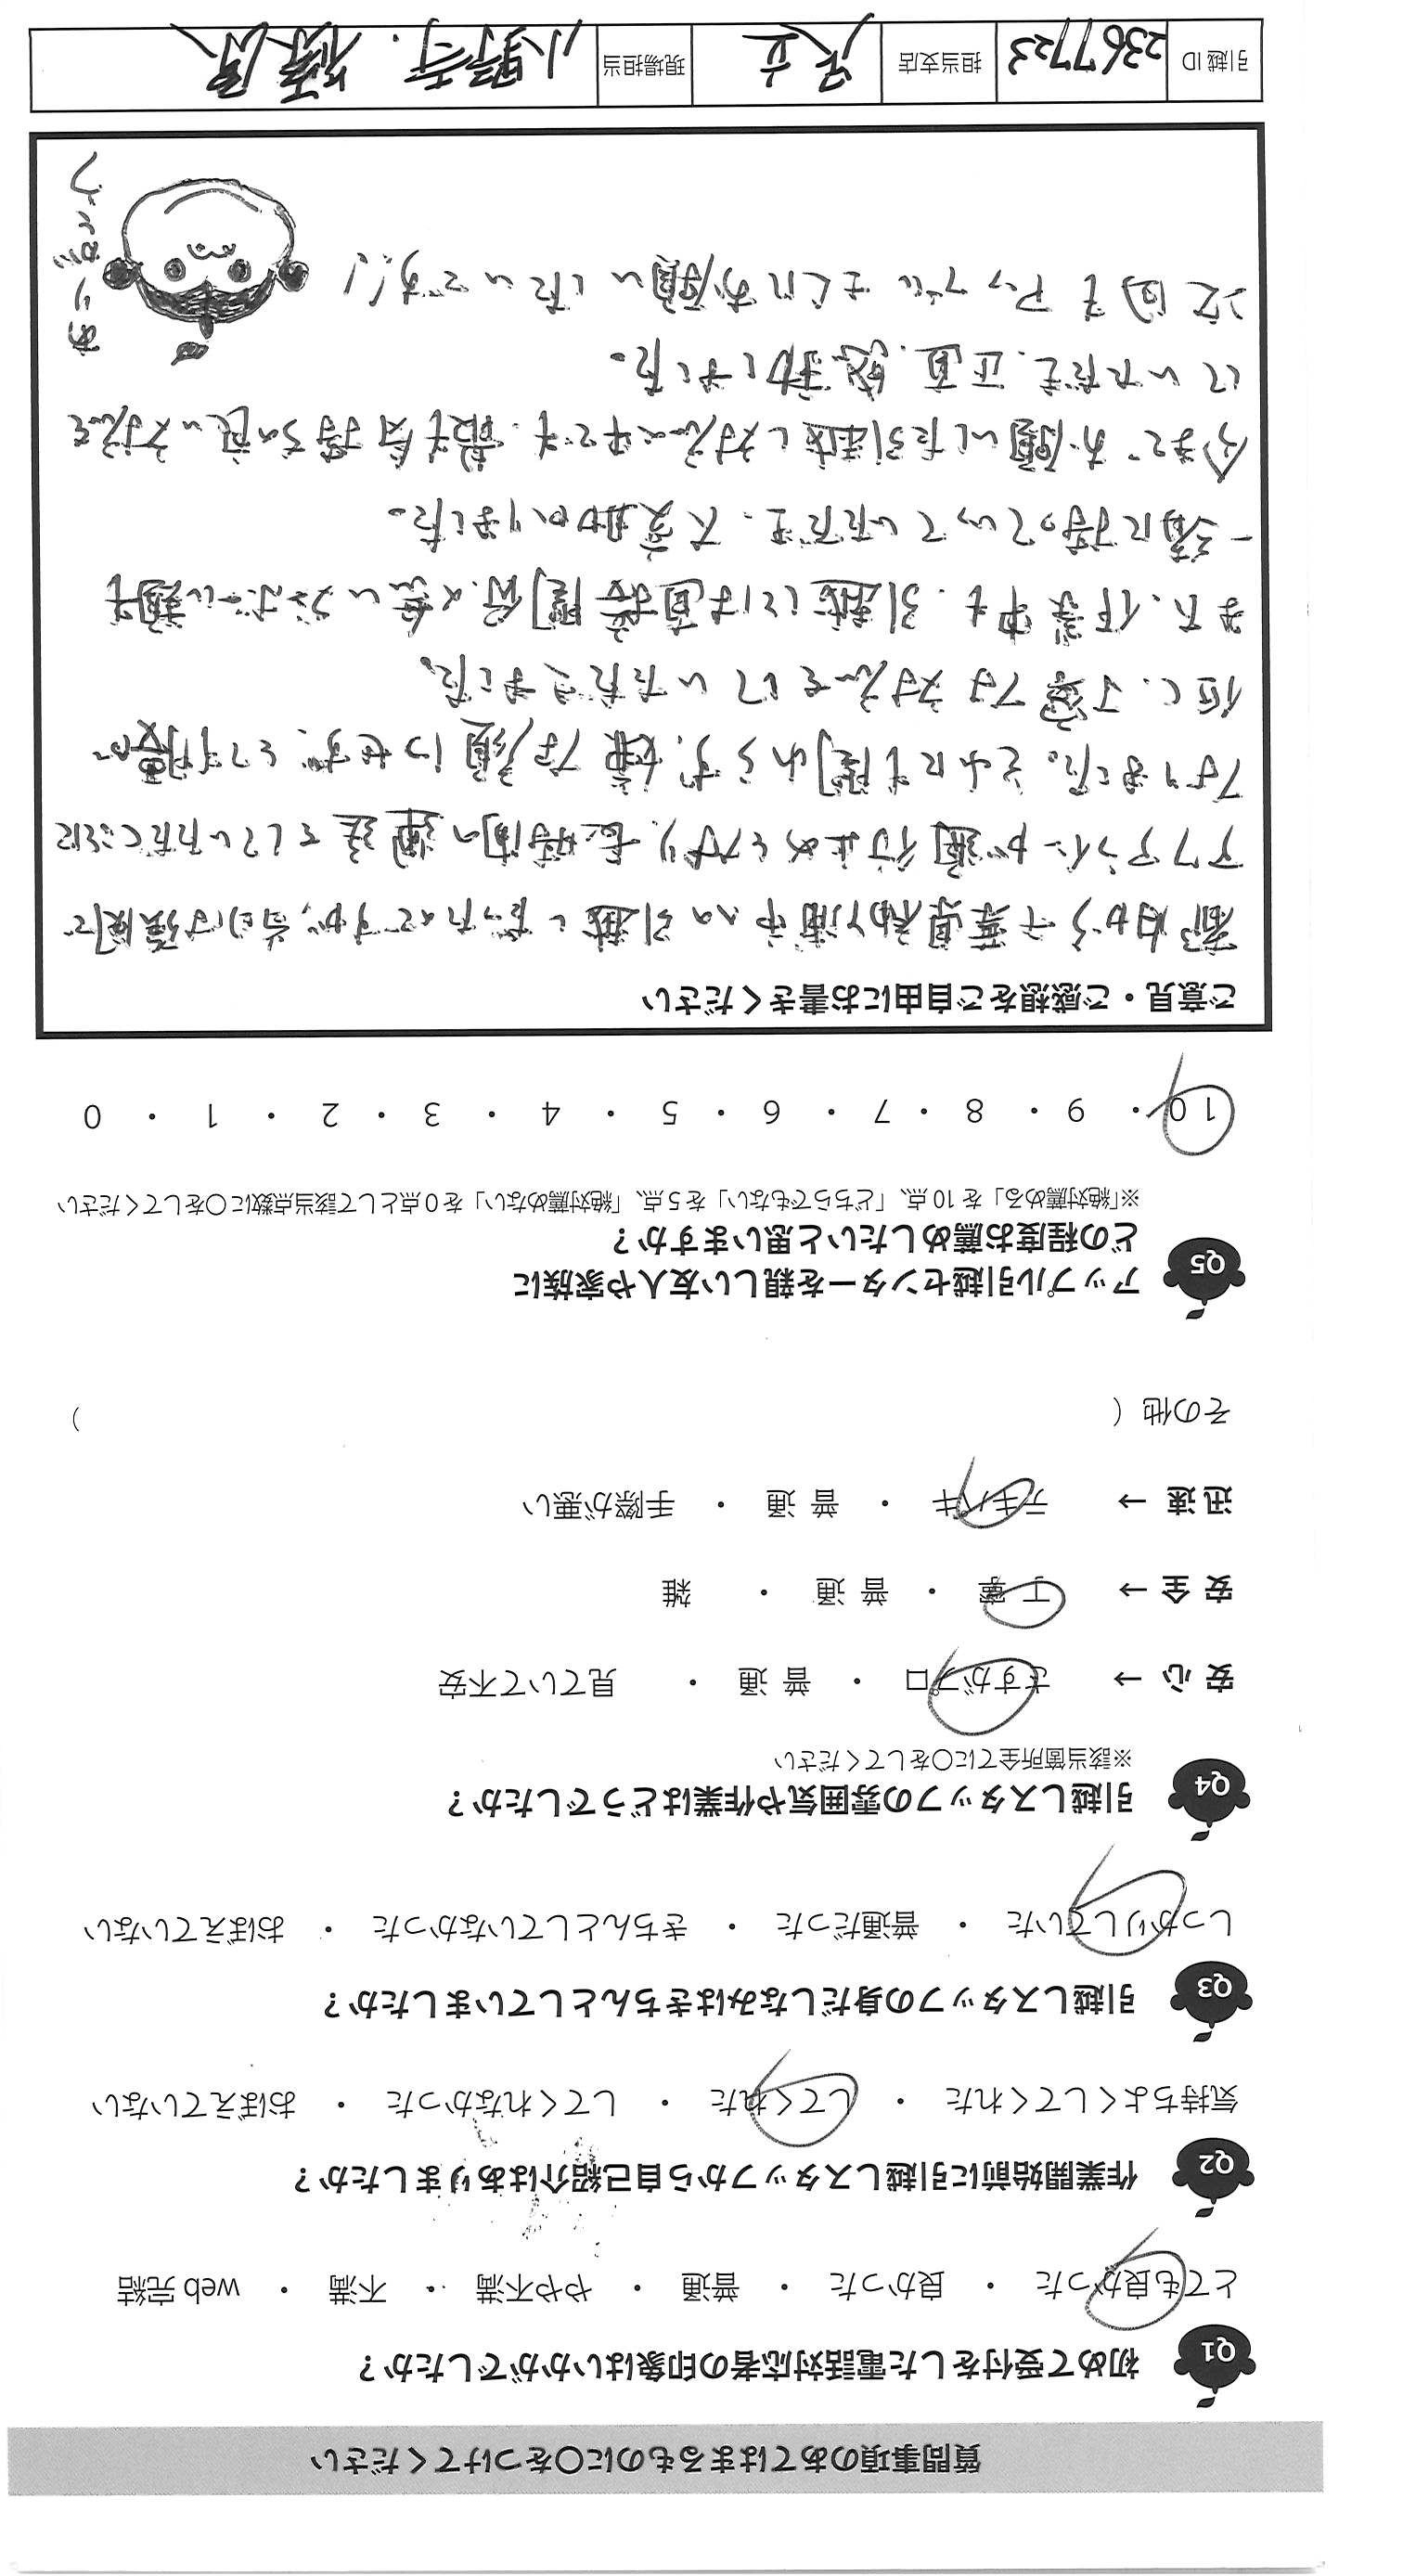 質問事項のあてはまるものに○をつけてください
Q1 初めて受付をした電話対応者の印象はいかがでしたか？
とても良かった ・ 良かった ・ 普通 ・ やや不満 ・ 不満 ・ web 完結
Q2 作業開始前に引越しスタッフから自己紹介はありましたか？
気持ちよくしてくれた ・ してくれた ・ してくれなかった ・ おぼえていない
Q3 引越しスタッフの身だしなみはきちんとしていましたか？
しっかりしていた ・ 普通だった ・ きちんとしていなかった ・ おぼえていない
Q4 引越しスタッフの雰囲気や作業はどうでしたか？
※該当箇所全てに○をしてください
安 心 → さすがプロ ・ 普 通 ・ 見ていて不安
安 全 → 丁 寧 ・ 普 通 ・ 雑
迅 速 → テキパキ ・ 普 通 ・ 手際が悪い
その他（ ）
Q5 アップル引越センターを親しい友人や家族に
どの程度お薦めしたいと思いますか？
※「絶対薦める」を 10 点、「どちらでもない」を 5 点、「絶対薦めない」を 0 点として該当点数に○をしてください
10 ・ 9 ・ 8 ・ 7 ・ 6 ・ 5 ・ 4 ・ 3 ・ 2 ・ 1 ・ 0
ご意見・ご感想をご自由にお書きください
都内から千葉県勝浦市への引越しだったのですが、当日は強風で
アクアラインが通行止めとなり、長時間の運送をしていただくことに
なりました。それにも関わらず、嫌な顔1つせず、とても腰が
低く、丁寧な対応をしていただきました。
また、作業中も、引越しとは直接関係の無いダンボールの梱包も
一緒に持っていっていただき、大変助かりました。
今までお願いした引越し対応の中でも、最も気持ちの良い対応を
していただき、正直、感動しました。
次回もアップルさんにお願いしたいです!!
ありがとう
引越 ID 2367723 担当支店 足立 現場担当 小野寺、藤原